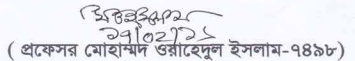 ২৭/০২/২১
( প্রফেসর মোহাম্মদ ওয়াহেদুল ইসলাম-১৪৯৮ )